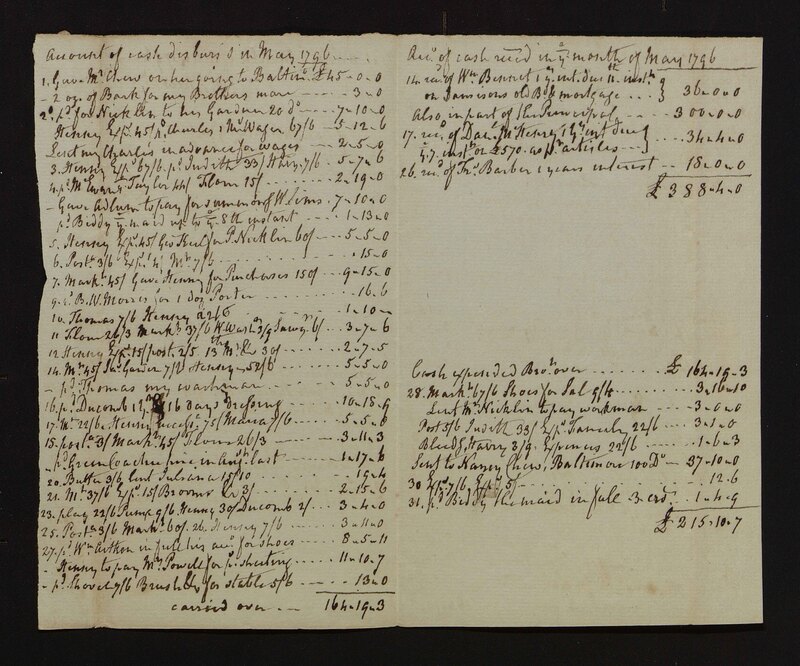 Account of cash disburs'd in May 1796
1. Gave Mrs Chew on her going to Baltimo. £45-0-0
- 2 oz. of Bark for my Brothers mare - 3-0
2. pd. for Nicklin to his Gardner 20 Do - 7-10-0
Henney Exps. 45/ pd. Charles & Mr Wager 67/6 - 5-12-6
Lent my Charles in advance for wages - 2-5-0
3. Henney Exps. 67/6. pd. Judith 33/ 7/6 - 5-7-6
4. pd. Taylor 44/ Flour 15/ - 2-19-0
- Gave Adlum to pay for Sims - 7-10-0
pd. Biddy ye. maid up to ye. 8th instant - 1-13-0
5. Henney Exps. 45/ Geo for P. Nicklin 60/ - 5-5-0
6. Poste. 3/6 Exps. 4/ Mr. 7/6 - 15-0
7. Markt. 45/ Gave Henney for Purchases 150/ - 9-15-0
9. pd. B. W. Morris for 1 doz. Porter - 16-6
10. Thomas 7/6 Henney 22/6 - 1-10-
11 Flour 26/3 Markt. 37/6 3/9 6/ - 3-7-6
12 Henney Exps. 15/ post. 2/5 13th 30/ - 2-7-5
14. Mt. 45/ Garden 7/6 Henney 52/6 - 5-5-0
- pd. Thomas my coachman - 5-5-0
16. pd. Ducomb 16 days dressing - 10-18-9
17. Mt. 22/6 Henney 75/ Maria 7/6 - 5-5-6
18. post. 3/ Markt. 45/ Flour 26/3 - 3-11-3
- pd. Green in Augt. last - 1-17-6
20 Butter 3/6 Lent 15/10 - 19-4
21. Mt. 37/6 Exps. 15/ Brooms 3/ - 2-15-6
23. play 22/6 Pump 9/6 Henney 30/ Ducomb 2/ - 3-4-0
25. Post. 3/6 Markt. 60/. 26. Henney 7/6 - 3-11-0
27. pd. Wm. in full his acct. for shoes - 8-5-11
- Henney to pay Mrs Powell for ps. sheeting - 11-10-7
- pd. Shovel 7/6 Brush for stable 5/6 - 13-0
carried over - 164-19-3
Acct. of cash recd in ye. month of May 1796
14. recd. of Wm. Bennet 1 yrs. int. due 11. instt.
on Jamisons old Bd. & mortgage } 36-0-0
Also in part of the Principal - 300-0-0
17. rec. of Danl. McHenry 1 yrs int. due
ye. 7. inst. on £570. as pr. articles } 34-4-0
26. rec. of Jno. Barber 1 years interest - 18-0-0
£388-4-0
Cash expended Brot. over £164-19-3
28. Markt. 67/6 Shoes for Sal 9/4 - 3-16-10
Lent Mr. Nicklin to pay workman - 3-0-0
Post 5/6 Judith 33/ Exps. 22/6 - 3-1-0
Bleedg. Harry 3/9. Expences 22/6 - 1-6-3
Sent to Harry Chew, Baltimore 100 Ds - 37-10-0
30 Exps. 7/6 Exps. 5/ - 12-6
31. pd. Biddy the maid in full 3 - 1-4-9
£215-10-7